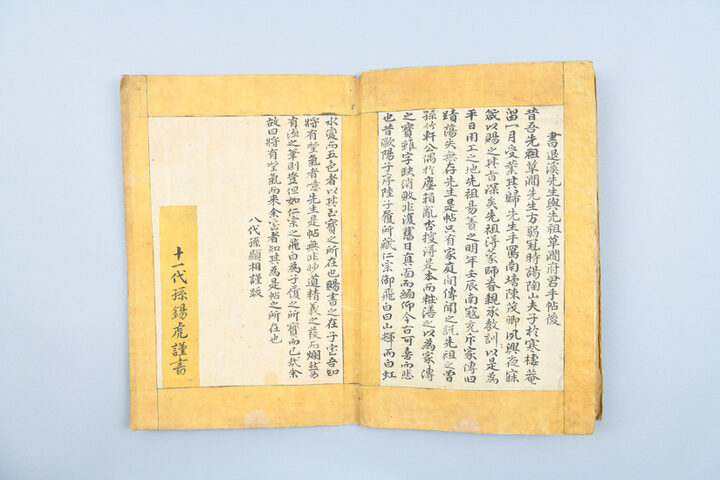 書退溪先生與先祖草澗府君手帖後
昔吾先祖草澗先生方弱冠時謁陶山夫子於寒棲菴
留一月受業其歸先生手寫南塘陳茂卿夙興夜寐
箴以賜之其旨深矣先祖得篆歸眷親承敎訓以是爲
平日用工之地先祖易簀之明年壬辰南寇充斥家傳旧
蹟蕩失無存先生是帖只有家庭間傳聞之說先祖之曾
孫竹軒公偶於塵箱亂帙搜得是本而粧潢之以為家傳
之寶雖字缺消敗非復舊日真面而緬仰今古可喜而悲
也昔歐陽子序陸子履所藏仁宗御飛白曰山輝而白虹
水變而五色者以其至寶之所在也賜書之在子室吾知
將有望氣者意先生是帖無非妙道精義之發而爛然
有德之筆則豈但如仁宗之飛白為子履之所寶而已哉余
故曰將有望氣而來余宅者知其為是帖之所在也
八代孫顯相謹跋
十一代孫錫虎謹書